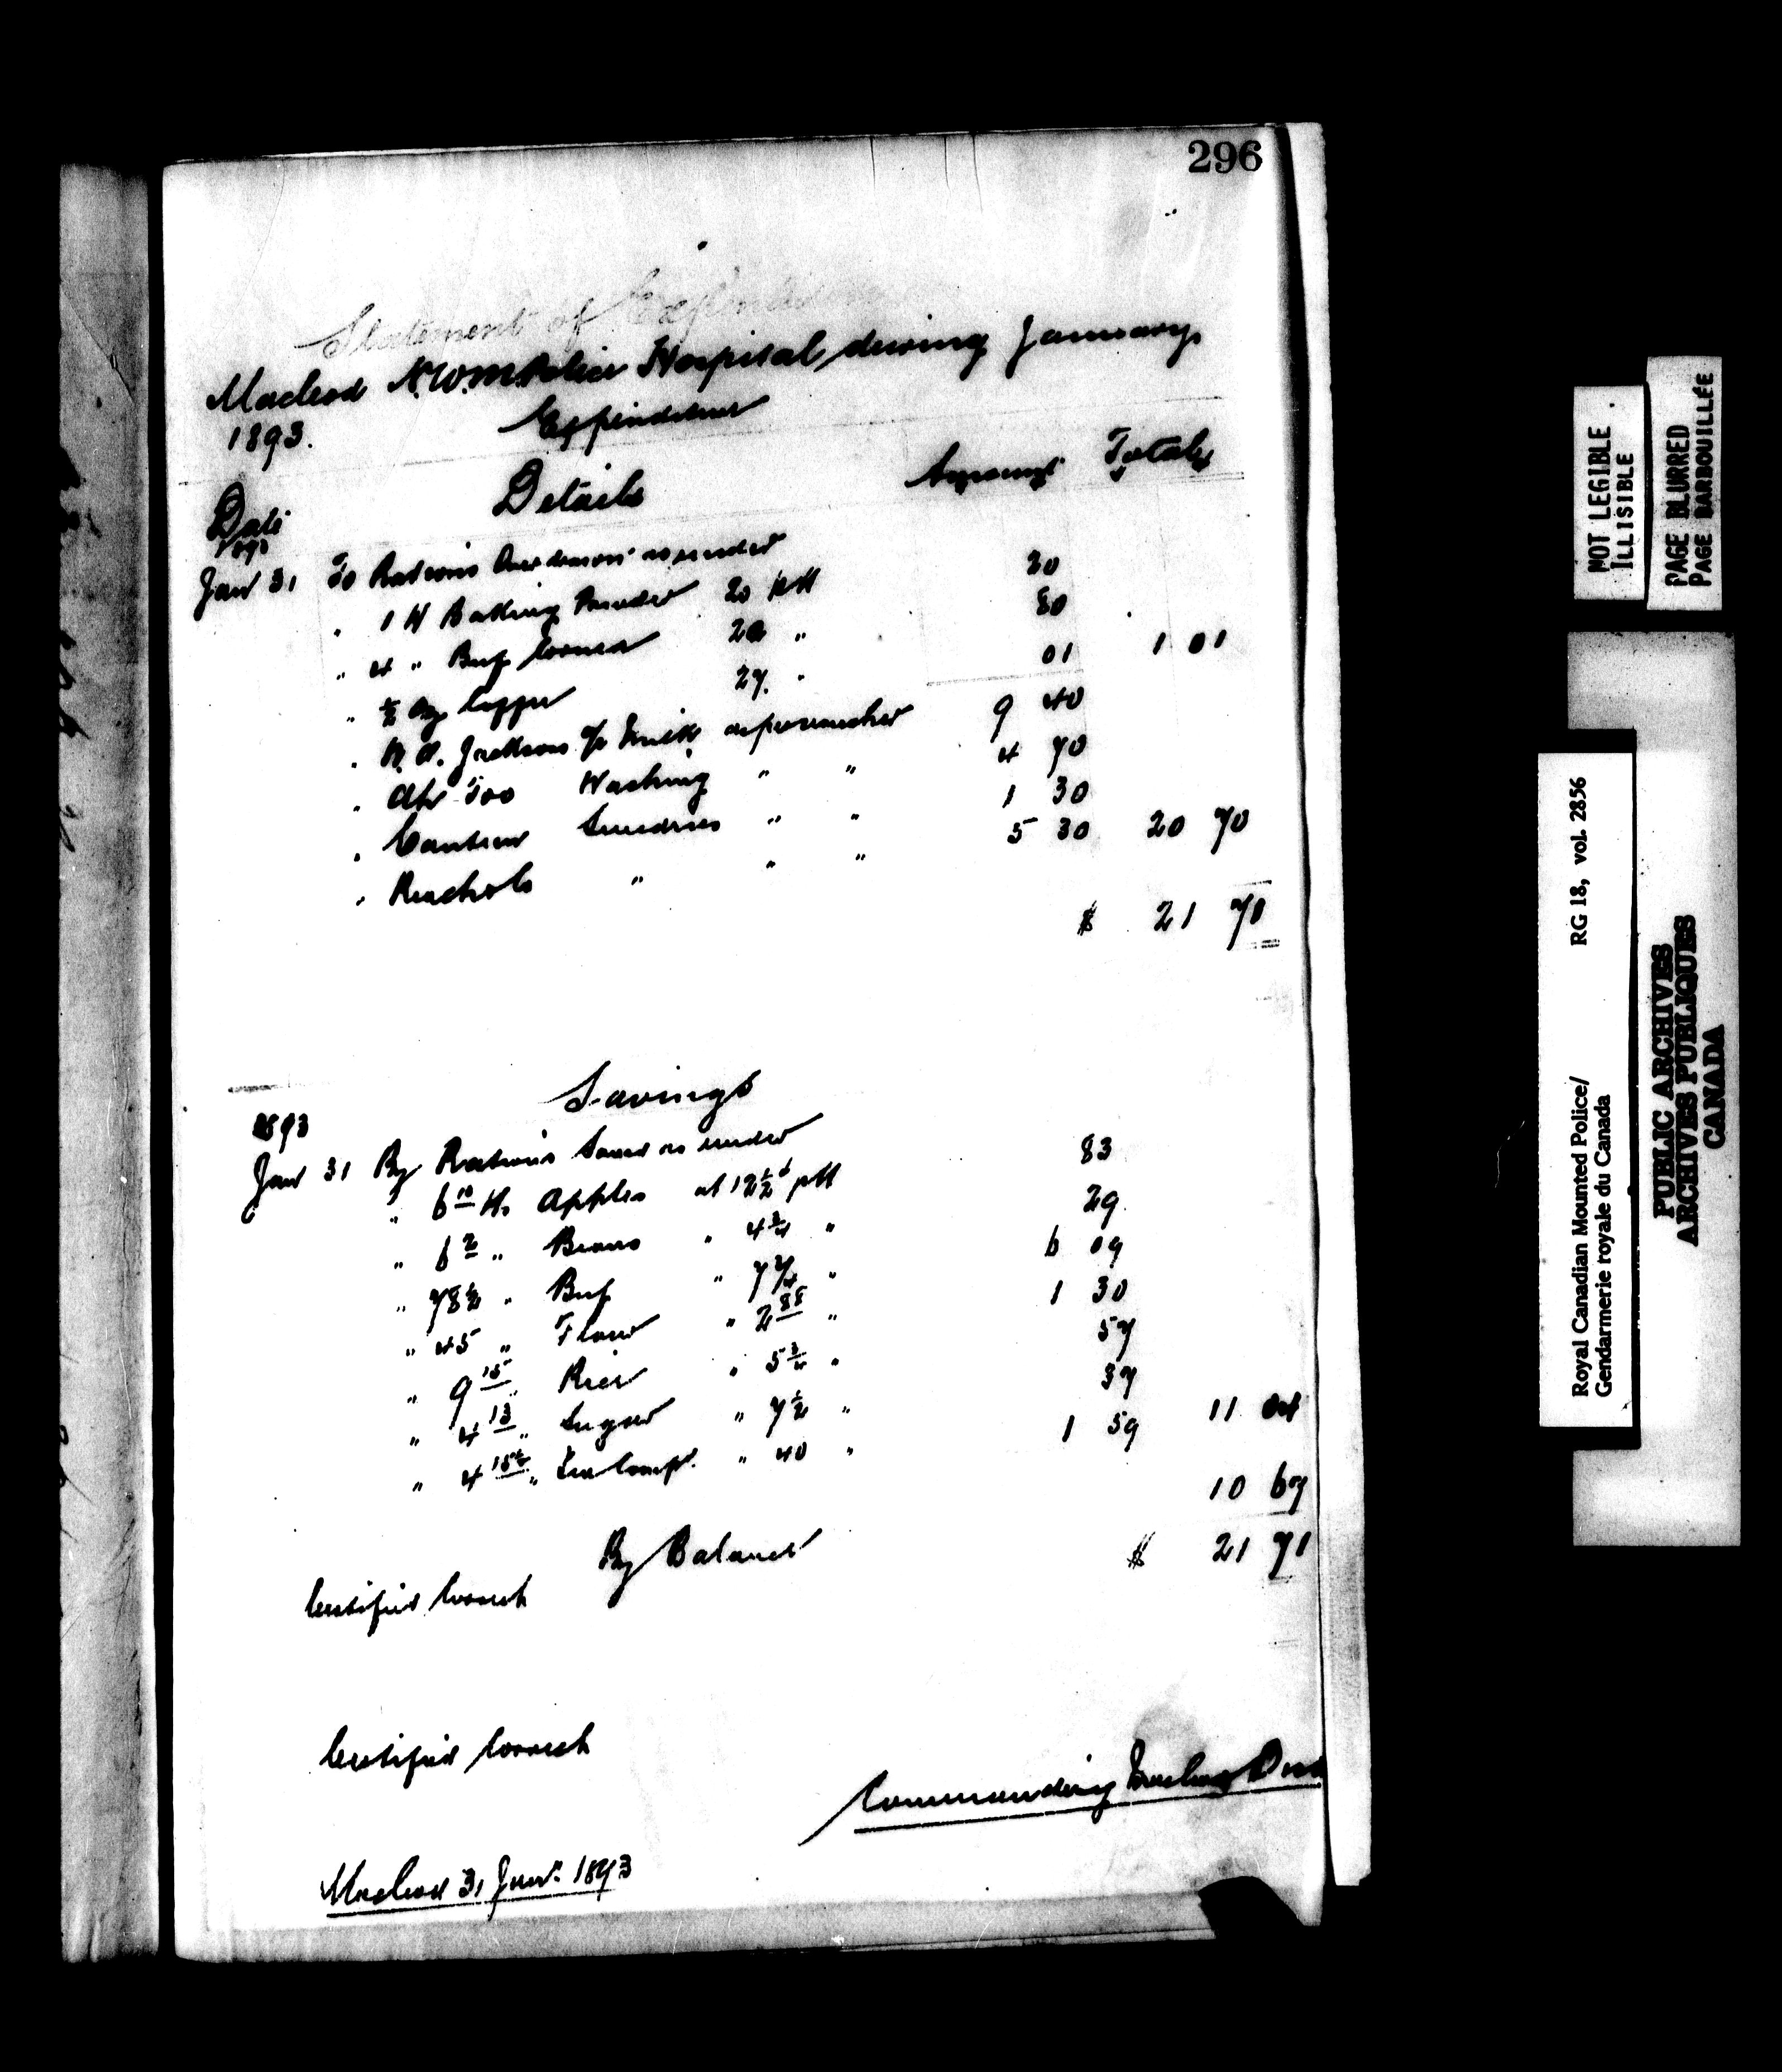 296
Statement of Expenditure
Macleod N.W.M. Police Hospital, during January
1893.
Expenditure
Date Details Amount Total
1893
Jan 31 To Rations Overdrawn as under
" 1 lb Baking Powder 20 p lb 20
" 4 " Beef Corned 20 " 80
" ½ oz Copper 27. " 01 1 01
" Jackson a/c Milk as per voucher 9 40
" Washing " " 4 70
" Canteen Sundries " " 1 30
" " " " 5 30 20 70
$ 21 71
Savings
1893
Jan 31 By Rations Saved as under
" 6 10 lbs Apples at 12½ p lb 83
" 6 2 " Beans " 4¾ " 29
" 78½ " Beef " 7¾ " 6 09
" 45 " Flour " 2 88 " 1 30
" 9 15 " Rice " 5¾ " 57
" 4 13 " Sugar " 7½ " 37
" 4 15½ " Tea Comp. " 40 " 1 59 11 04
By Balance 10 67
$ 21 71
Certified Correct
Certified Correct
Commanding Macleod Dist
Macleod 31 Jany. 1893
NOT LEGIBLE
ILLISIBLE
PAGE BLURRED
PAGE BARBOUILLÉE
Royal Canadian Mounted Police/ RG 18, vol. 2856
Gendarmerie royale du Canada
PUBLIC ARCHIVES
ARCHIVES PUBLIQUES
CANADA